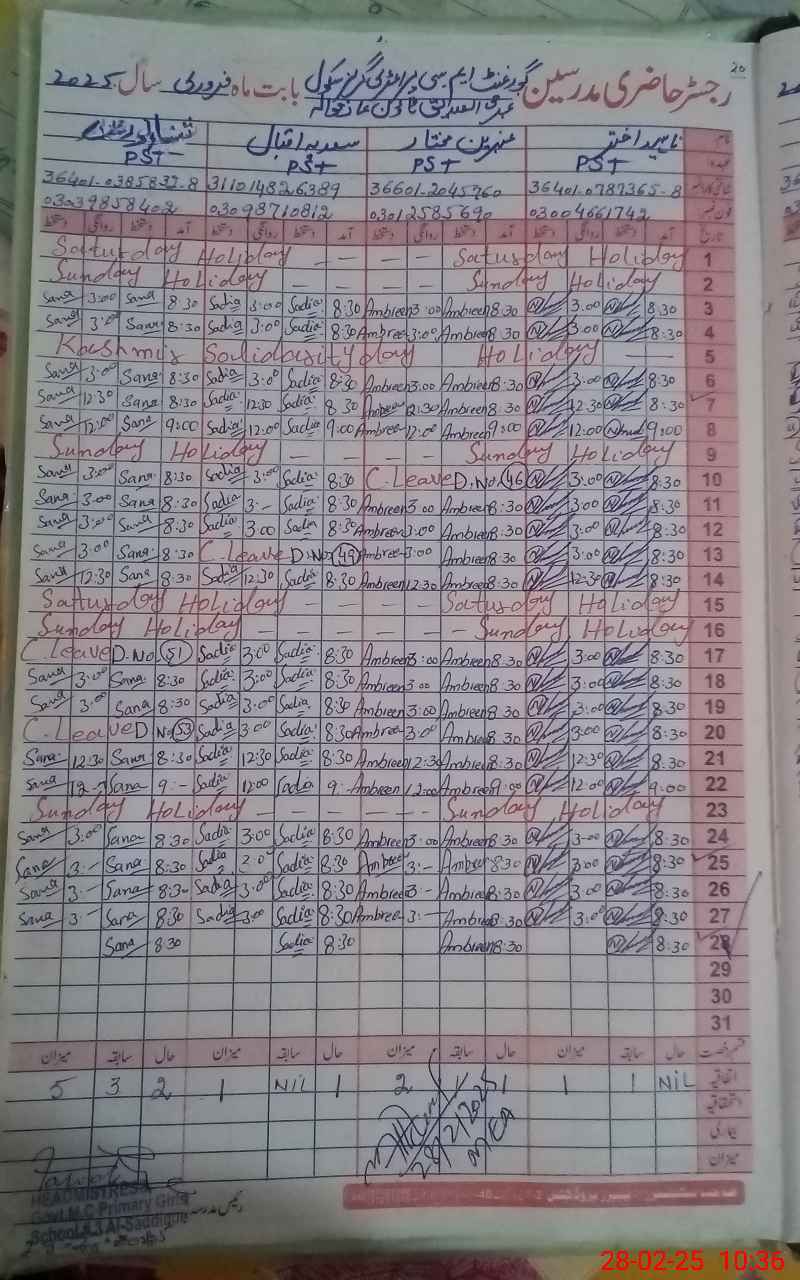 20
رجسٹر حاضری مدرسین گورنمنٹ ایم سی پرائمری گرلز سکول بابت ماہ فروری سال 2025
نام ناہید اختر عنبرین مختار سعدیہ اقبال
عہدہ PST PST PST PST
36401-0787365-8 36601-2045760 311014826389 36401-0385832-8
03004661742 03012585690 03098710812 03039858402
تاریخ آمد دستخط روانگی دستخط آمد دستخط روانگی دستخط آمد دستخط روانگی دستخط آمد دستخط روانگی دستخط
Saturday Holiday — — — — Saturday Holiday 1
Sunday Holiday — — — — Sunday Holiday 2
Sana 3:00 Sana 8:30 Sadia 3:00 Sadia 8:30 Ambreen 3:00 Ambreen 8:30 3:00 8:30 3
Sana 3:00 Sana 8:30 Sadia 3:00 Sadia 8:30 Ambreen 3:00 Ambreen 8:30 3:00 8:30 4
Kashmir Solidarity day Holiday — — 5
Sana 3:00 Sana 8:30 Sadia 3:00 Sadia 8:30 Ambreen 3:00 Ambreen 8:30 3:00 8:30 6
Sana 12:30 Sana 8:30 Sadia 12:30 Sadia 8:30 Ambreen 12:30 Ambreen 8:30 12:30 8:30 7
Sana 12:00 Sana 9:00 Sadia 12:00 Sadia 9:00 Ambreen 12:00 Ambreen 9:00 12:00 9:00 8
Sunday Holiday — — — — Sunday Holiday 9
Sana 3:00 Sana 8:30 Sadia 3:00 Sadia 8:30 C.Leave D.No. 46 3:00 8:30 10
Sana 3:00 Sana 8:30 Sadia 3:- Sadia 8:30 Ambreen 3:00 Ambreen 8:30 3:00 8:30 11
Sana 3:00 Sana 8:30 Sadia 3:00 Sadia 8:30 Ambreen 3:00 Ambreen 8:30 3:00 8:30 12
Sana 3:00 Sana 8:30 C.Leave D.No. 49 Ambreen 3:00 Ambreen 8:30 3:00 8:30 13
Sana 12:30 Sana 8:30 Sadia 12:30 Sadia 8:30 Ambreen 12:30 Ambreen 8:30 12:30 8:30 14
Saturday Holiday — — — — Saturday Holiday 15
Sunday Holiday — — — — — Sunday Holiday 16
C.Leave D.No. 51 Sadia 3:00 Sadia 8:30 Ambreen 3:00 Ambreen 8:30 3:00 8:30 17
Sana 3:00 Sana 8:30 Sadia 3:00 Sadia 8:30 Ambreen 3:00 Ambreen 8:30 3:00 8:30 18
Sana 3:00 Sana 8:30 Sadia 3:00 Sadia 8:30 Ambreen 3:00 Ambreen 8:30 3:00 8:30 19
C.Leave D No 53 Sadia 3:00 Sadia 8:30 Ambreen 3:00 Ambreen 8:30 3:00 8:30 20
Sana 12:30 Sana 8:30 Sadia 12:30 Sadia 8:30 Ambreen 12:30 Ambreen 8:30 12:30 8:30 21
Sana 12-- Sana 9:- Sadia 12:00 Sadia 9:- Ambreen 12:00 Ambreen 9:00 12:00 9:00 22
Sunday Holiday — — — — Sunday Holiday 23
Sana 3:00 Sana 8:30 Sadia 3:00 Sadia 8:30 Ambreen 3:00 Ambreen 8:30 3:00 8:30 24
Sana 3:- Sana 8:30 Sadia 2:00 Sadia 8:30 Ambreen 3:- Ambreen 8:30 3:00 8:30 25
Sana 3:- Sana 8:30 Sadia 3:00 Sadia 8:30 Ambreen 3:- Ambreen 8:30 3:00 8:30 26
Sana 3:- Sana 8:30 Sadia 3:00 Sadia 8:30 Ambreen 3:- Ambreen 8:30 3:00 8:30 27
Sana 8:30 Sadia 8:30 Ambreen 8:30 8:30 28
29
30
31
حال سابقہ میزان حال سابقہ میزان حال سابقہ میزان حال سابقہ میزان
اتفاقیہ
5 3 2 1 Nil 1 2 1 1 1 1 NiL
استحقاقیہ
بیماری
میزان
28/2/2025
MEA
HEADMISTRESS
Govt.M.C Primary Girls
School Al-Saddique
رئیس مدرسہ
28-02-25 10:36